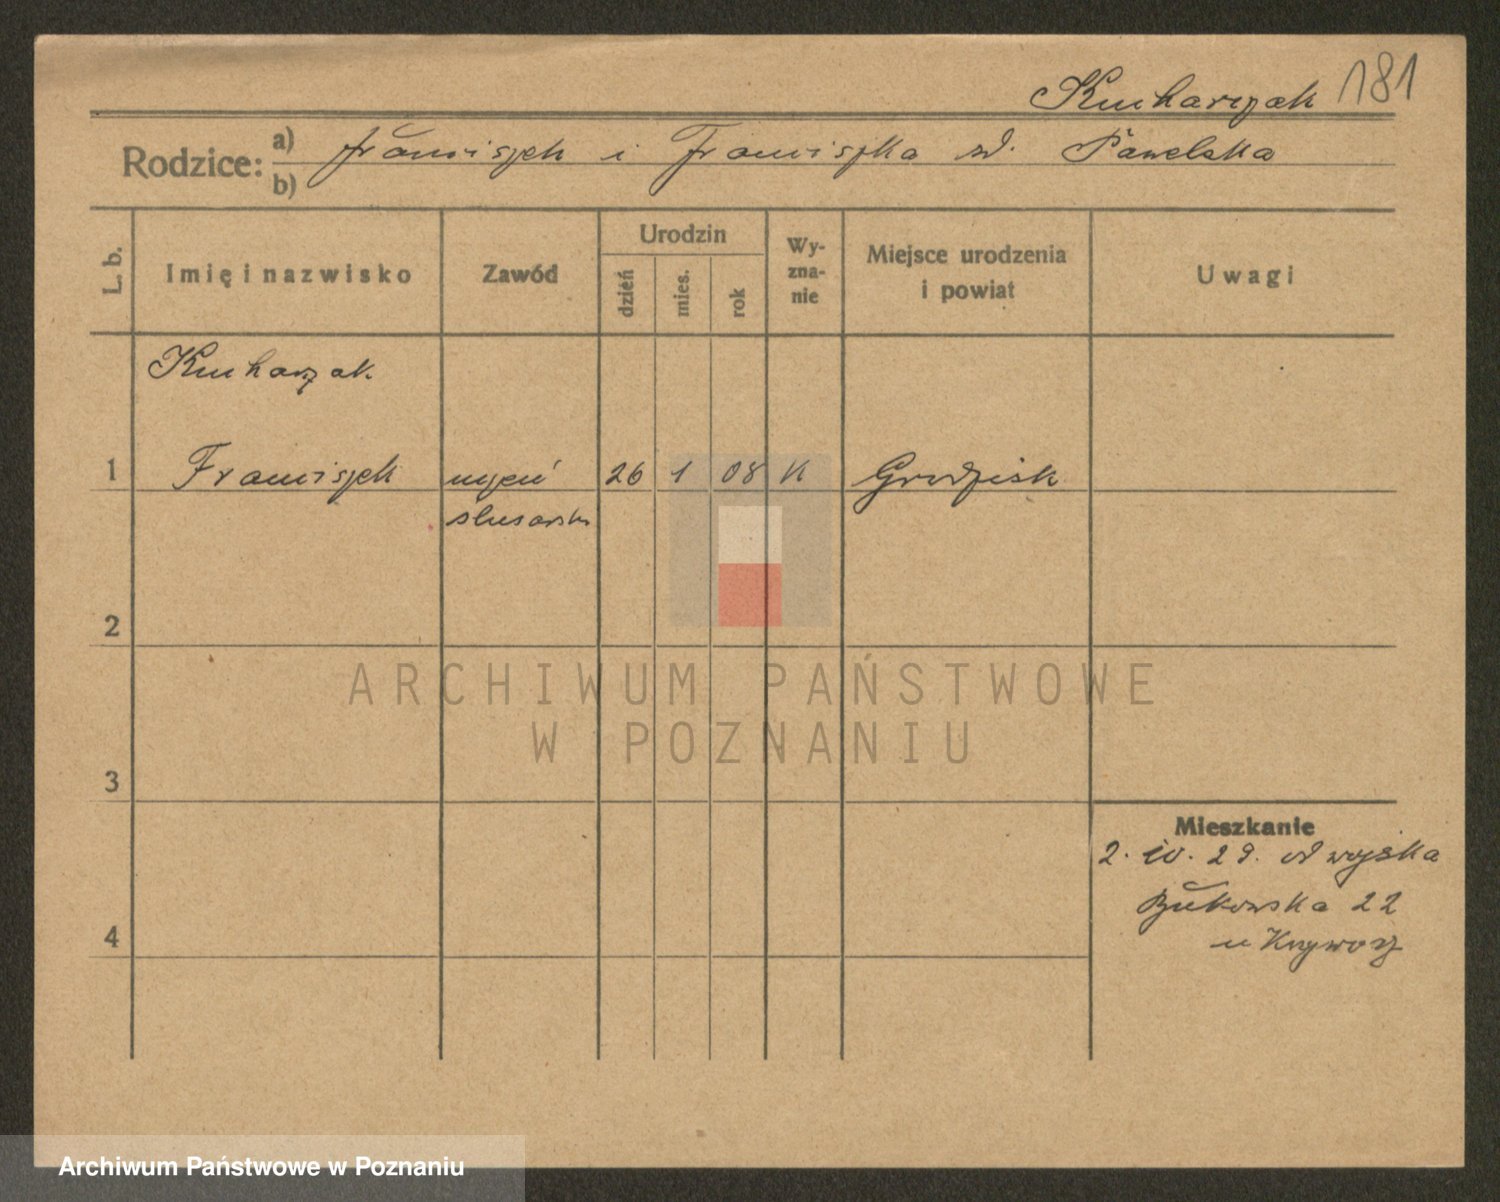 Kucharczak 181
Rodzice: a) Franciszek i Franciszka zd. Pawelska
b)
L. b.
Imię i nazwisko
Zawód
Urodzin
dzień
mies.
rok
Wy-
zna-
nie
Miejsce urodzenia
i powiat
Uwagi
Kucharzak
1 Franciszek uczeń 26 1 08 k Grodzisk
ślusarski
2
3
4
Mieszkanie
2. IV. 29. od wojska
Bukowska 22
u
ARCHIWUM PAŃSTWOWE
W POZNANIU
Archiwum Państwowe w Poznaniu